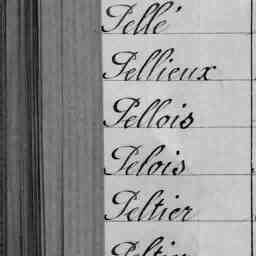 Pellé
Pellieux
Pellois
Pelois
Peltier